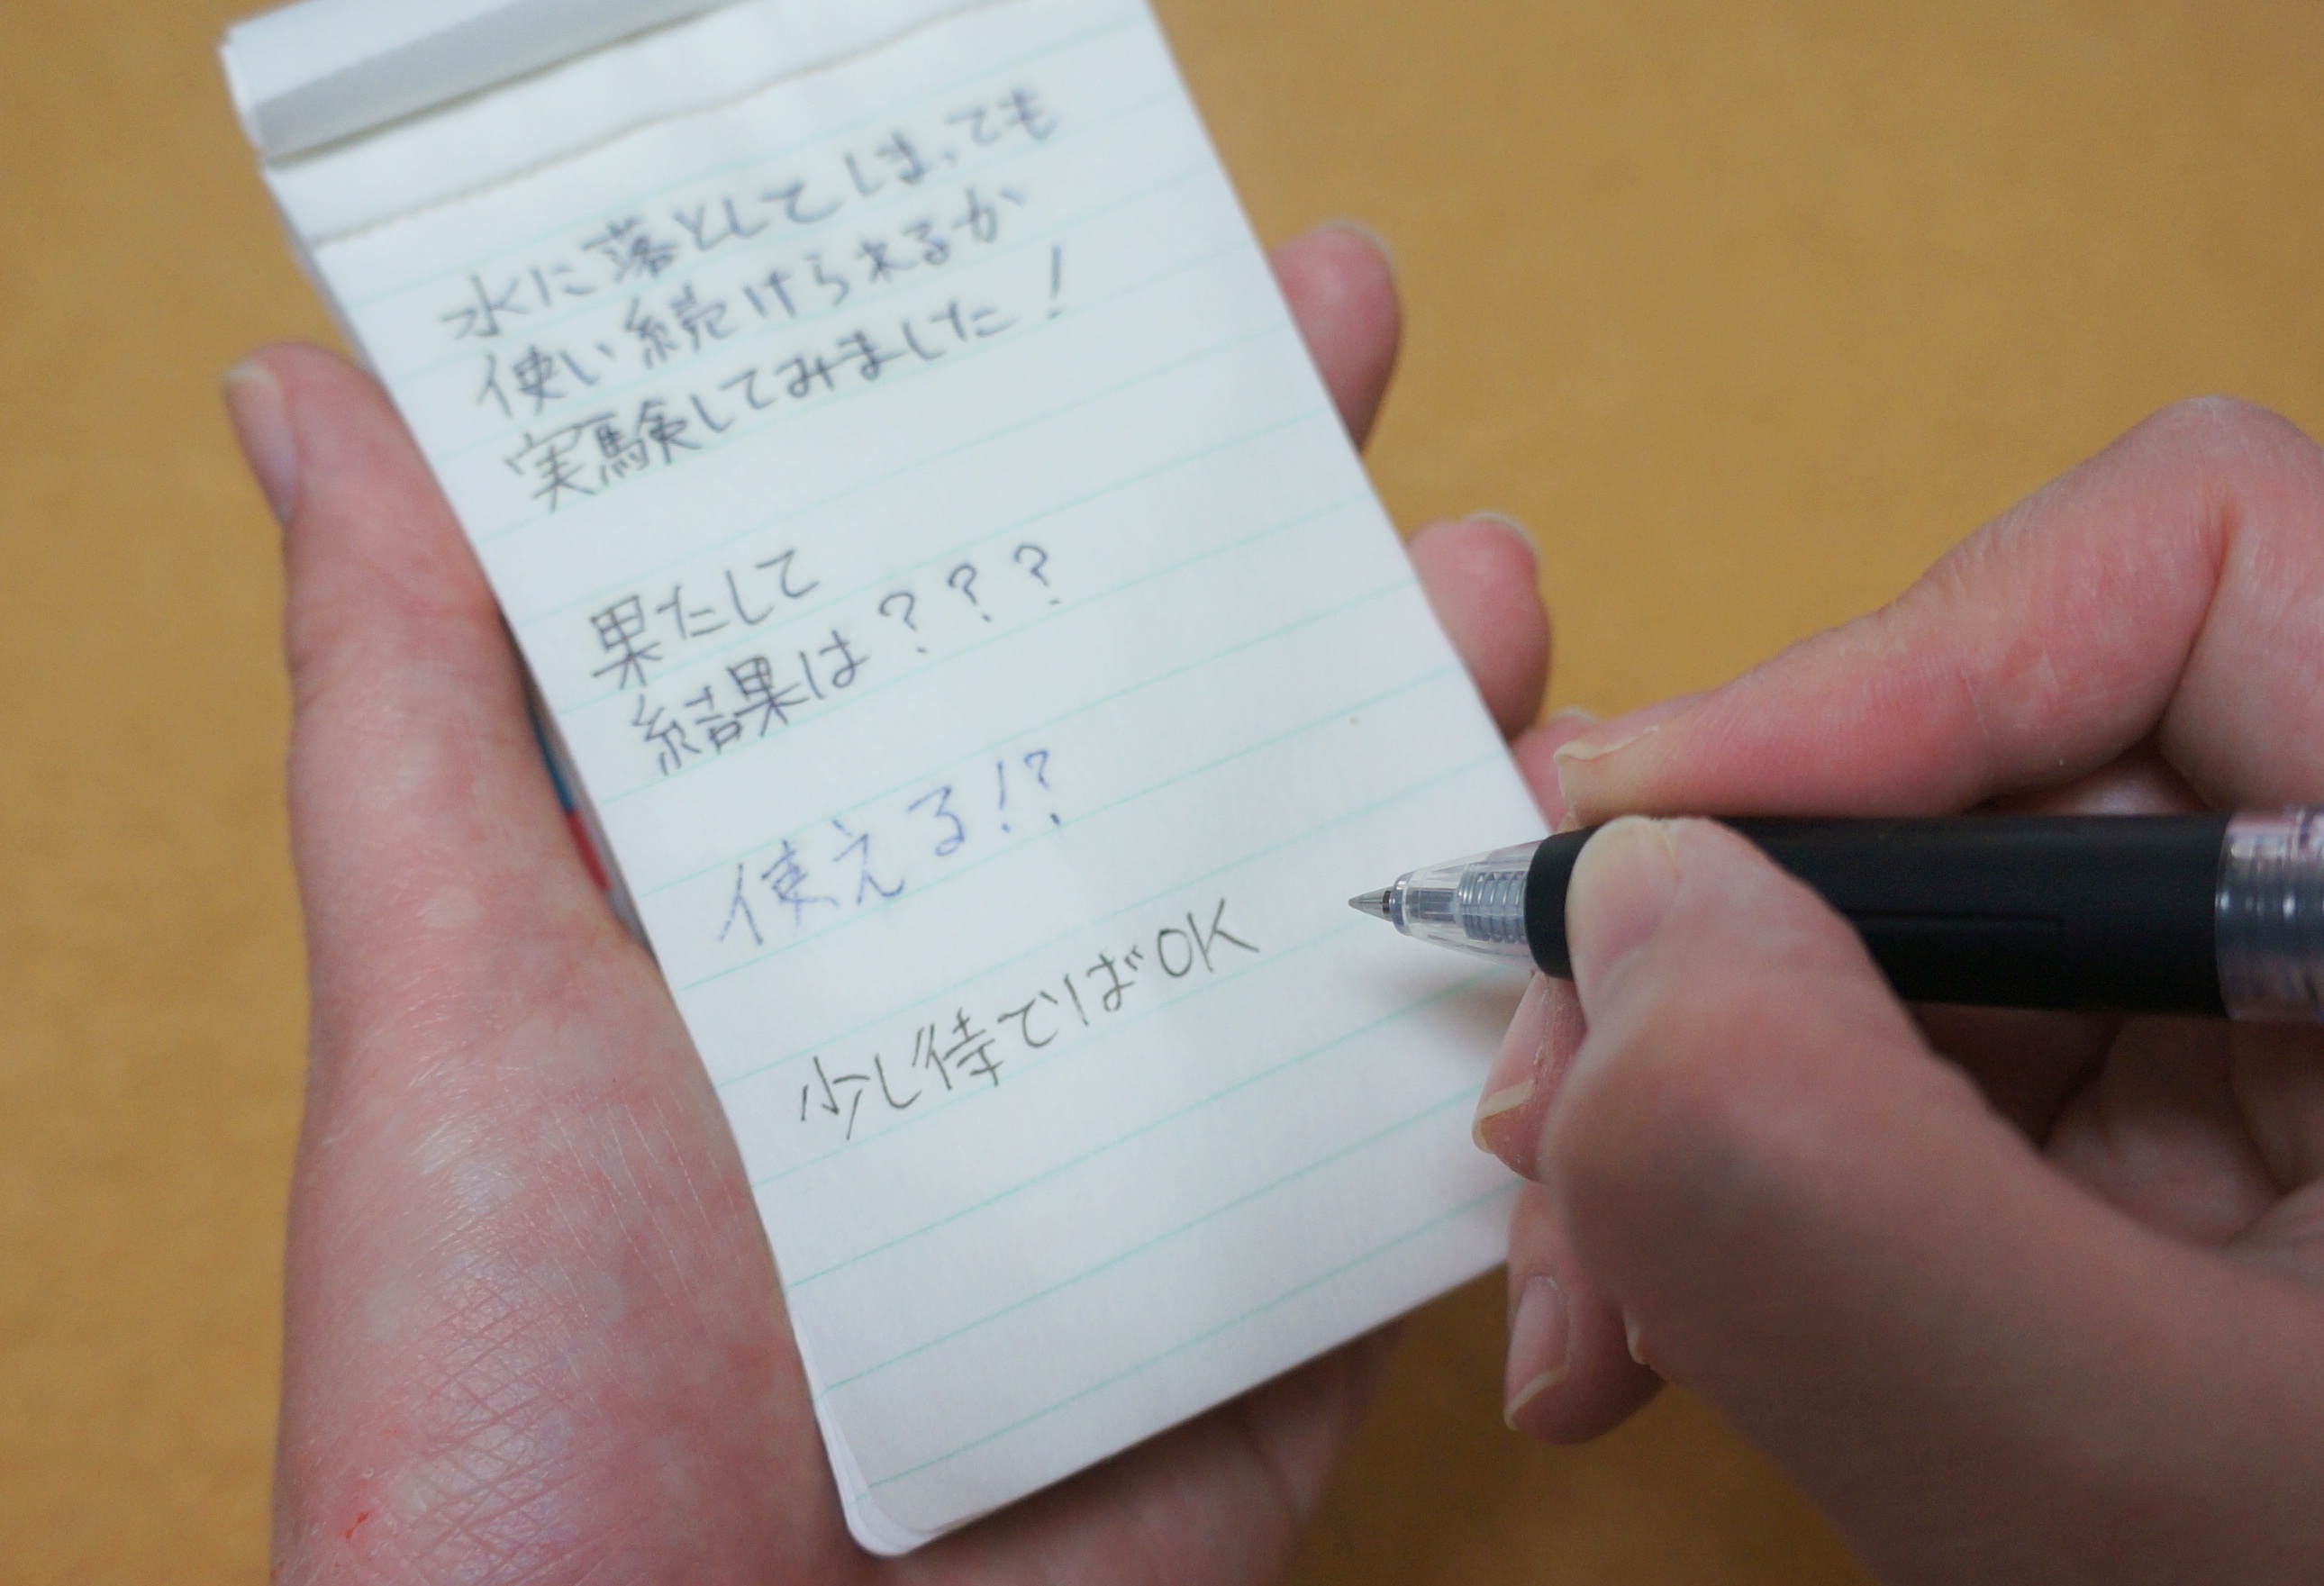 水に落としてしまっても
使い続けられるか
実験してみました!
果たして
結果は???
使える!?
少し待てばOK